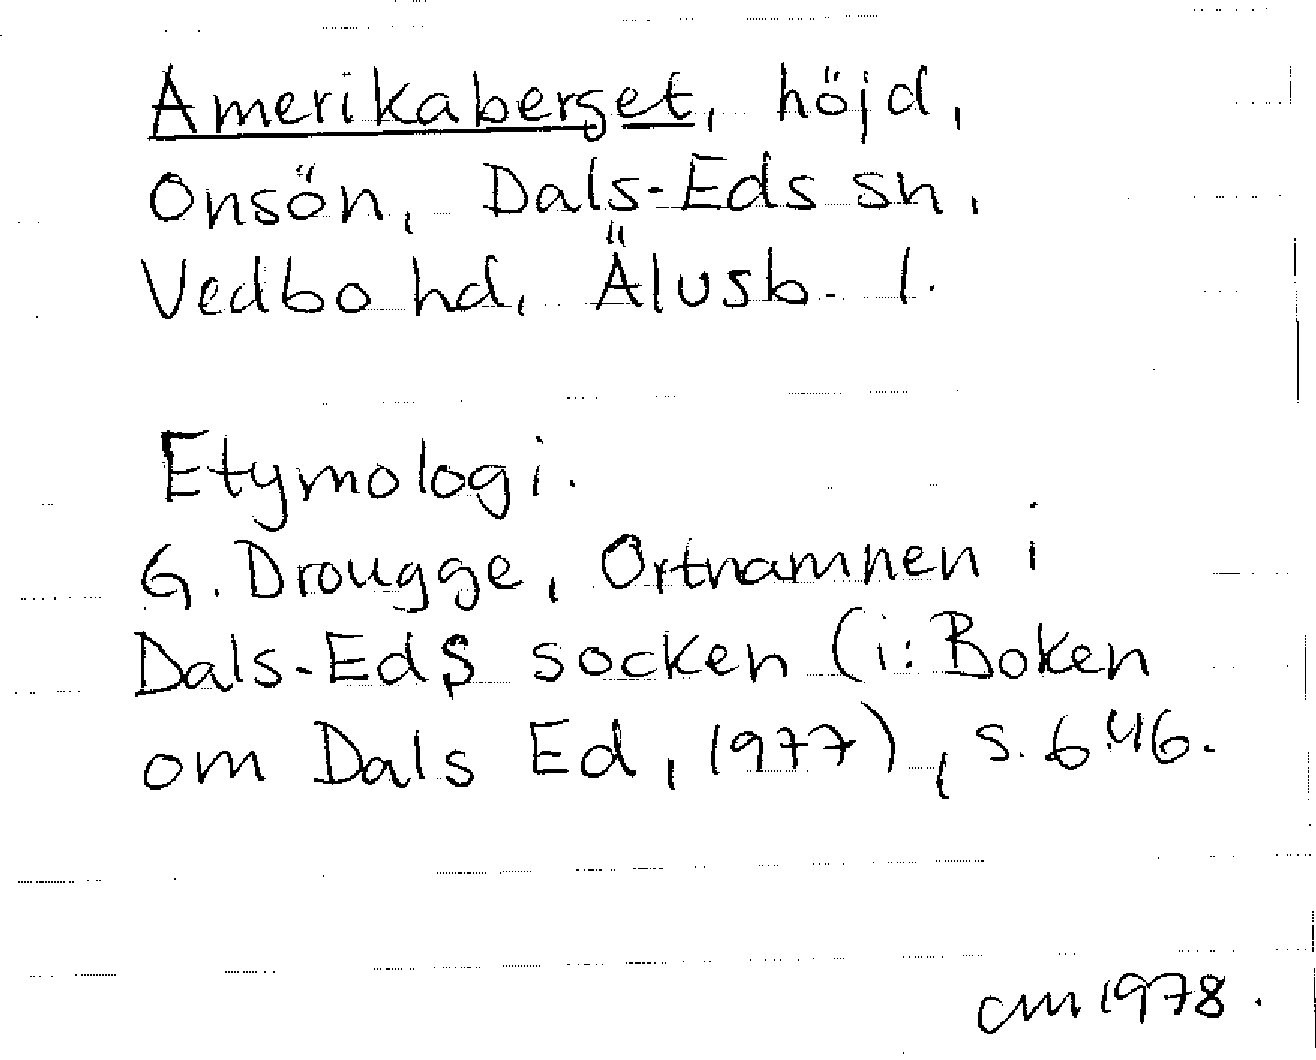 Amerikaberget, höjd,
Onsön, Dals-Eds sn,
Vedbo hd, Älvsb. l.
Etymologi.
G. Drougge, Ortnamnen i
Dals-Eds socken (i: Boken
om Dals Ed, 1977), s. 646.
cm 1978.